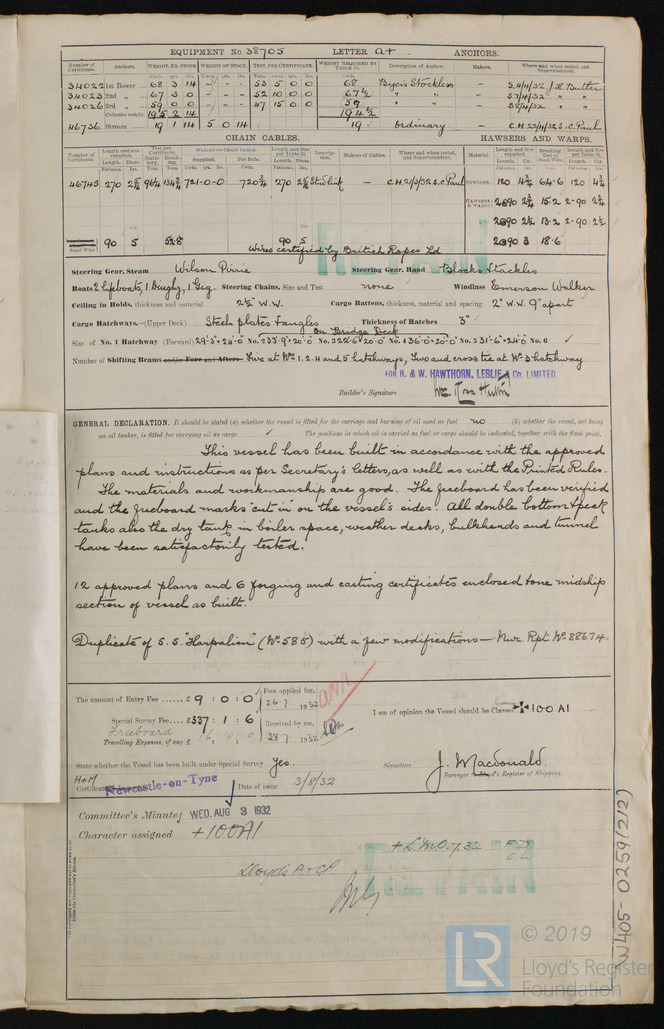 EQUIPMENT No 38705 LETTER a+ ANCHORS.
Number of Certificate. Anchors. WEIGHT, EX. STOCK WEIGHT OF STOCK. TEST, PER CERTIFICATE. WEIGHT REQUIRED BY TABLE 31. Description of Anchor. Makers. Where and when tested and Superintendent.
34022 1st Bower 68 3 14 - - - 53 5 0 0 68 Byers Stockless — 5/4/32 J.H. Butler
34023 2nd " 67 3 0 - - - 52 10 0 0 67½ " " — 5/4/32 "
34026 3rd " 59 0 0 - - - 47 15 0 0 59 " " — 5/4/32 "
Collective weight 195 2 14 194½
46736 Stream 19 1 14 5 0 14 19 Ordinary — C.H. 22/4/32 S.C. Paul
CHAIN CABLES. HAWSERS AND WARPS.
Number of Certificate. Length and size supplied. Test per Certificate. WEIGHT OF CHAIN CABLE. Length and size per Table 31. Description. Makers of Cables. Where and when tested, and Superintendent. Material Length and Size supplied. Breaking Test of Steel Wire Length and Size per Table 31.
Fathoms. Diam. Supplied. Per Rule. Fathoms. Diam.
46745 270 96¼ 134¾ 721-0-0 720¾ 270 Stud link — C.H. 21/3/32 S.C. Paul TOWLINE 120 4¾ 64·6 120 4¾
HAWSERS & WARPS 2@90 2½ 15·2 2-90 2½
2@90 2½ 13·2 2-90 2½
90 5 52·8 90 5 2@90 3 18·6
Wires certified by British Ropes Ld
Steering Gear, Steam Wilson Pirrie Steering Gear, Hand Blocks & tackles
Boats 2 lifeboats, 1 Dinghy, 1 Gig. Steering Chains, Size and Test none Windlass Emerson Walker
Ceiling in Holds, thickness and material 2½" W.W. Cargo Battens, thickness, material and spacing 2" W.W. 9" apart
Cargo Hatchways.—(Upper Deck) Steel plates & angles Thickness of Hatches 3"
on Bridge Deck
Size of No. 1 Hatchway (Forward) 29'-3" × 24'-0" No. 2 33'-9" × 20'-0" No. 3 22'-6" × 20'-0" No. 4 36'-0" × 20'-0" No. 5 31'-6" × 24'-0" No. 6 ✓
Number of Shifting Beams and/or Fore and Afters Five at Nos 1. 2. 4 and 5 hatchways, Two and cross tie at No 3 hatchway.
FOR R. & W. HAWTHORN, LESLIE & Co. LIMITED.
Builder's Signature
GENERAL DECLARATION. It should be stated (a) whether the vessel is fitted for the carriage and burning of oil used as fuel no (b) whether the vessel, not being
an oil tanker, is fitted for carrying oil as cargo ✓ The positions in which oil is carried as fuel or cargo should be indicated, together with the flash point.
This vessel has been built in accordance with the approved
plans and instructions as per Secretary's letters, as well as with the Printed Rules.
The materials and workmanship are good. The freeboard has been verified
and the freeboard marks cut in on the vessel's sides. All double bottom & peak
tanks also the dry tank in boiler space, weather decks, bulkheads and tunnel
have been satisfactorily tested.
12 approved plans and 6 forging and casting certificates enclosed & one midship
section of vessel as built.
Duplicate of S.S. "Harpalion" (No 585) with a few modifications — Nwc. Rpt No 88674.
The amount of Entry Fee ...... £ 9 : 0 : 0 Fees applied for, 26.7. 1932
Special Survey Fee.... £337 : 1 : 6 Received by me,
Freeboard 16 : 0 : 0 28.7. 1932
Travelling Expenses, if any £
I am of opinion the Vessel should be Classed ✠100 A1
State whether the Vessel has been built under Special Survey Yes. Signature J. Macdonald.
Surveyor to Lloyd's Register of Shipping.
H+M
Newcastle-on-Tyne Date of issue 3/8/32
Committee's Minute WED. AUG 3 1932
Character assigned +100A1
+ L.M.C. 7.32 F.D.
C.L.
Lloyd's A & CP
RETAIN
RETAIN
W405-0259(2/2)
LR
© 2019
Lloyd's Register
Foundation